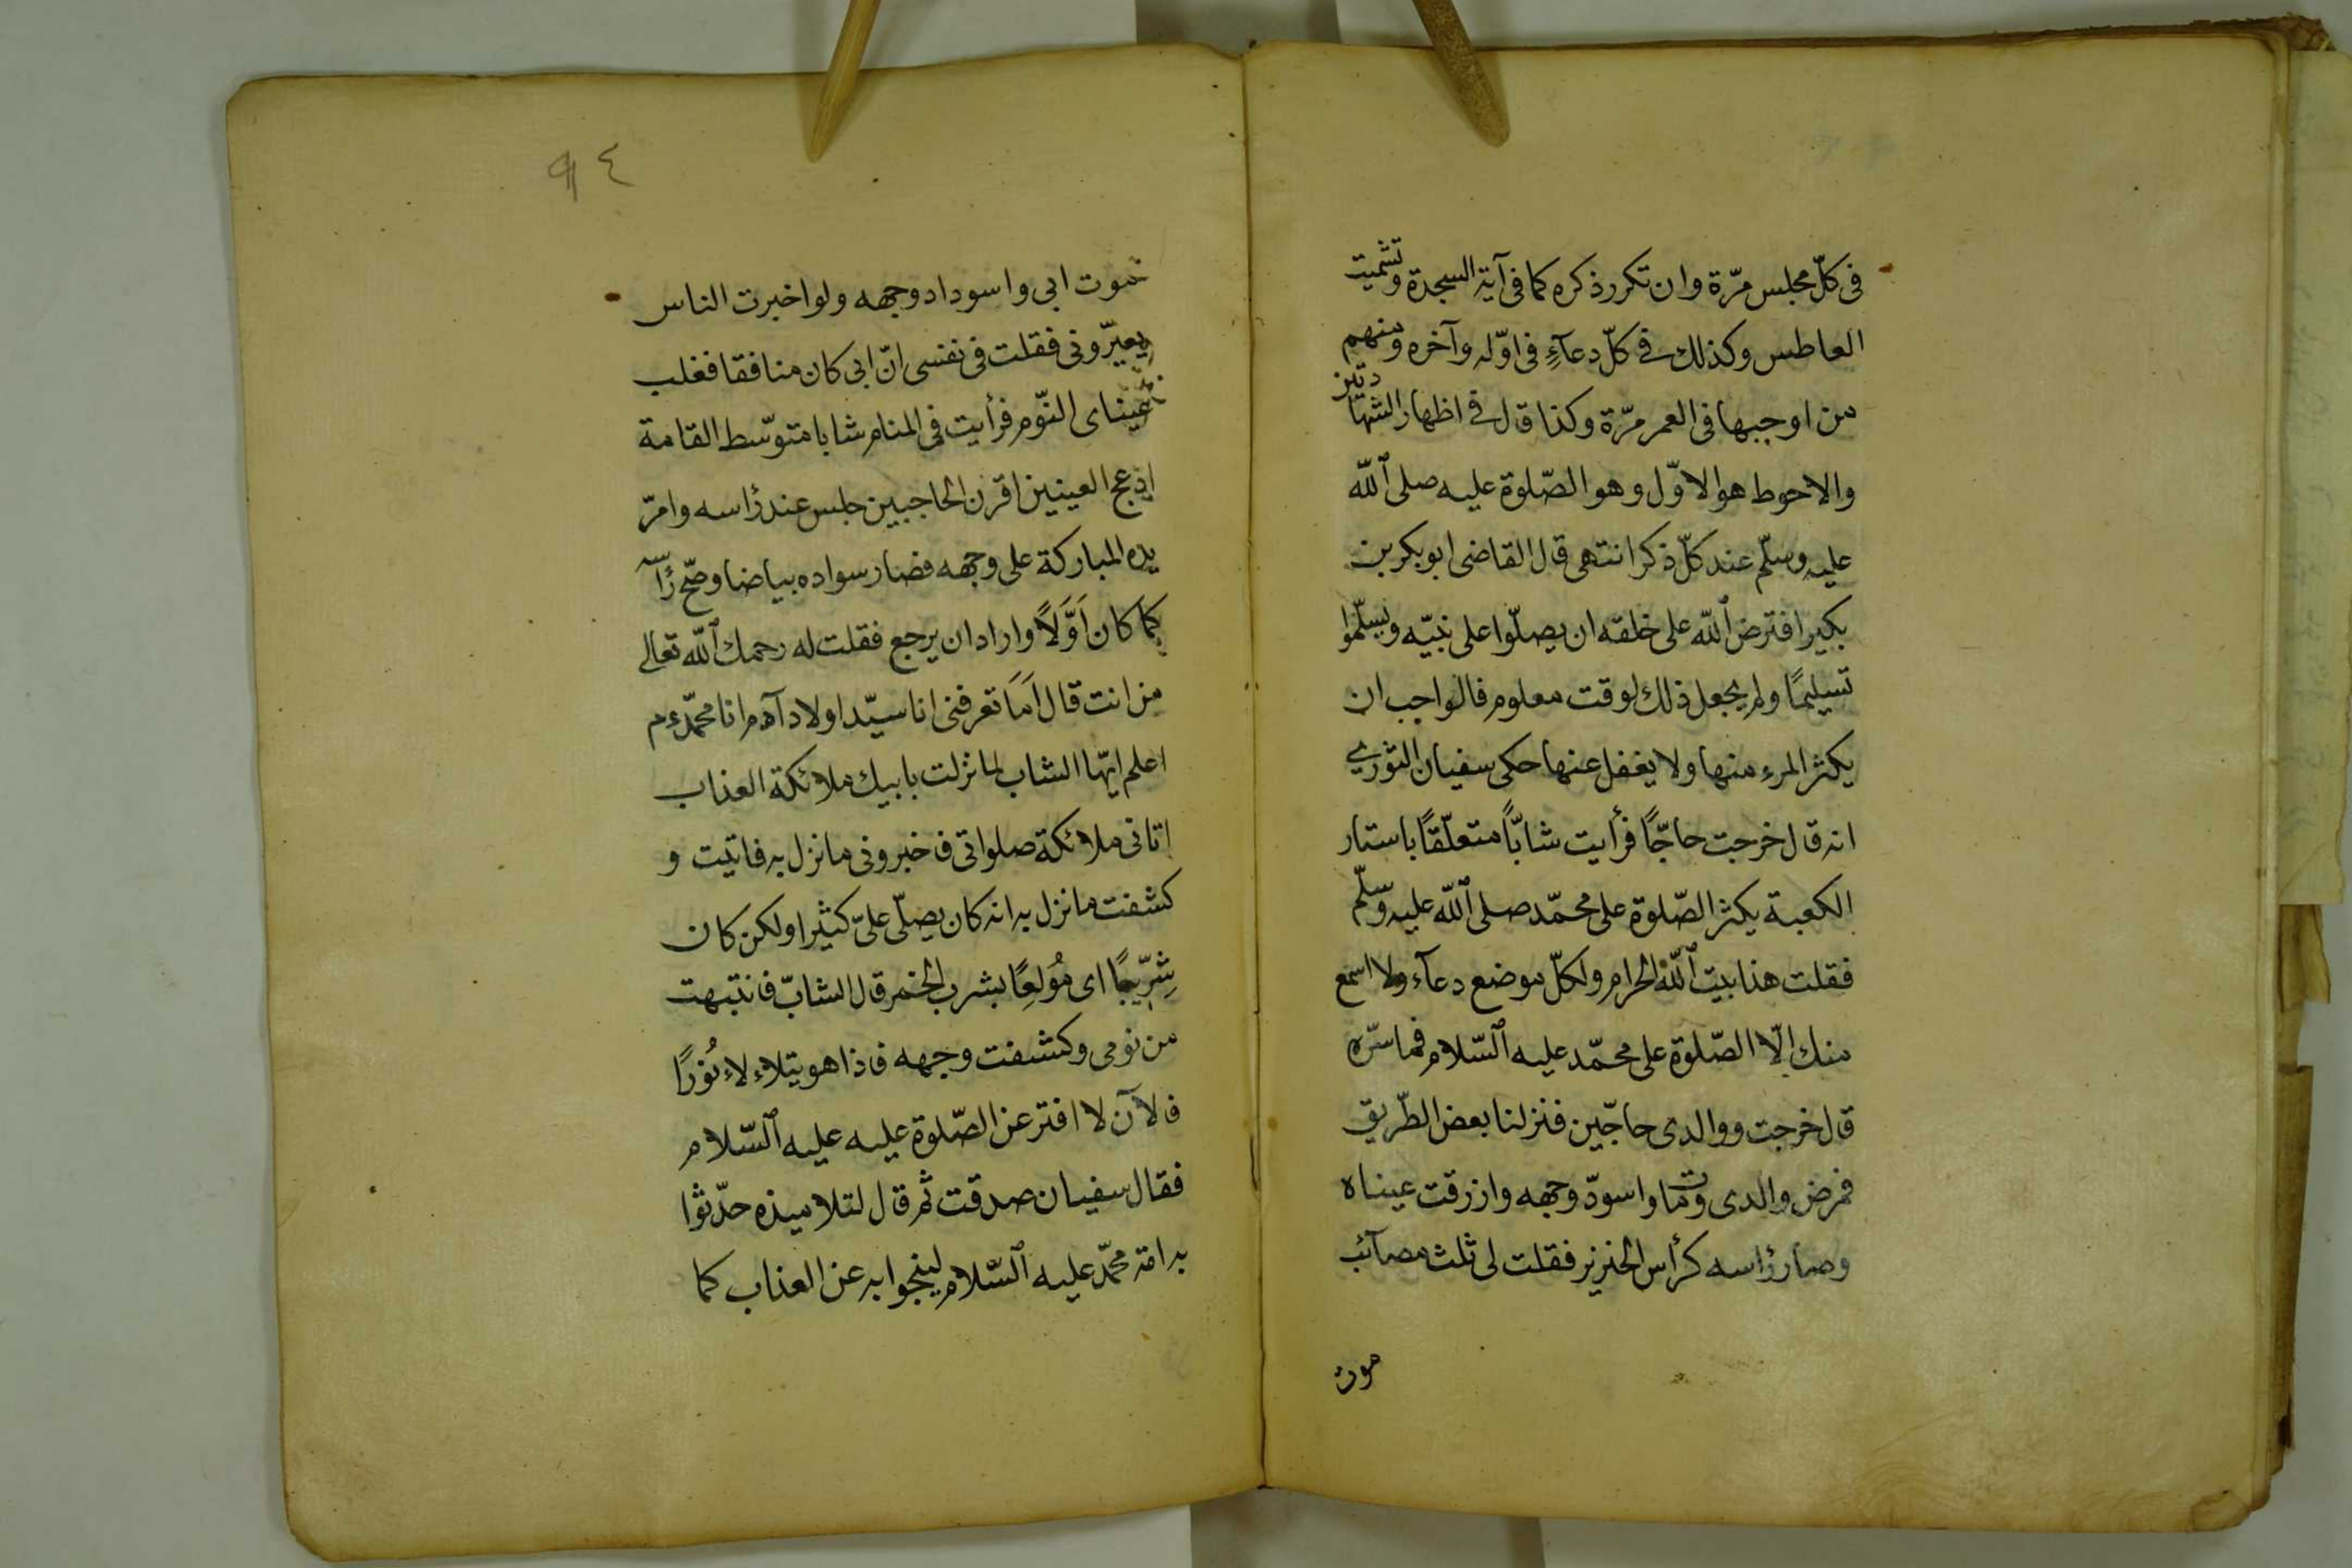 فى كلّ مجلس مرّة وان تكرر ذكره كما فى آية السجدة وتشميت
العاطس وكذلك فى كلّ دعآءٍ فى اوّله وآخره ومنهم
من اوجبها فى العمر مرّة وكذا قال فى اظهار الشهادتين
والاحوط هو الاوّل وهو الصّلوة عليه صلى الله
عليه وسلّم عند كلّ ذكر انتهى قال القاضى ابو بكر بن
بكير افترض الله على خلقه ان يصلّوا على نبيّه ويسلّموا
تسليمًا ولم يجعل ذلك لوقت معلوم فالواجب ان
يكثر المرء منها ولا يغفل عنها حكى سفيان الثورى
انه قال خرجت حاجًّا فرأيت شابًّا متعلّقًا باستار
الكعبة يكثر الصّلوة على محمّد صلى الله عليه وسلّم
فقلت هذا بيت الله الحرام ولكلّ موضع دعآء ولا اسمع
منك الّا الصّلوة على محمّد عليه السّلام فما سرّه
قال خرجت ووالدى حاجّين فنزلنا بعض الطّريق
فمرض والدى ومات واسودّ وجهه وازرقت عيناه
وصار رأسه كرأس الخنزير فقلت لى ثلث مصآئب
موت
٩٤
موت ابى واسوداد وجهه ولو اخبرت الناس
يعيّرونى فقلت فى نفسى انّ ابى كان منافقا فغلب
عيناى النّوم فرأيت فى المنام شابا متوسّط القامة
ادعج العينين اقرن الحاجبين جلس عند رأسه وامرّ
يده المباركة على وجهه فصار سواده بياضا وصحّ رأسه
كما كان اَوَّلًا واراد ان يرجع فقلت له رحمك الله تعالى
من انت قال اَمَا تعرفنى انا سيّد اولاد آدم انا محمّد عم
اعلم ايّها الشاب لما نزلت بابيك ملائكة العذاب
اتانى ملائكة صلواتى فاخبرونى ما نزل به فاتيت و
كشفت ما نزل به انه كان يصلّى علىّ كثيرا ولكن كان
شِرِّيبًا اى مُولعًا بشرب الخمر قال الشابّ فانتبهت
من نومى وكشفت وجهه فاذا هو يتلاءلاء نُورًا
فلآن لا افتر عن الصّلوة عليه عليه السّلام
فقال سفيان صدقت ثم قال لتلاميذه حدّثوا
به امّة محمّد عليه السّلام لينجوا به عن العذاب كما